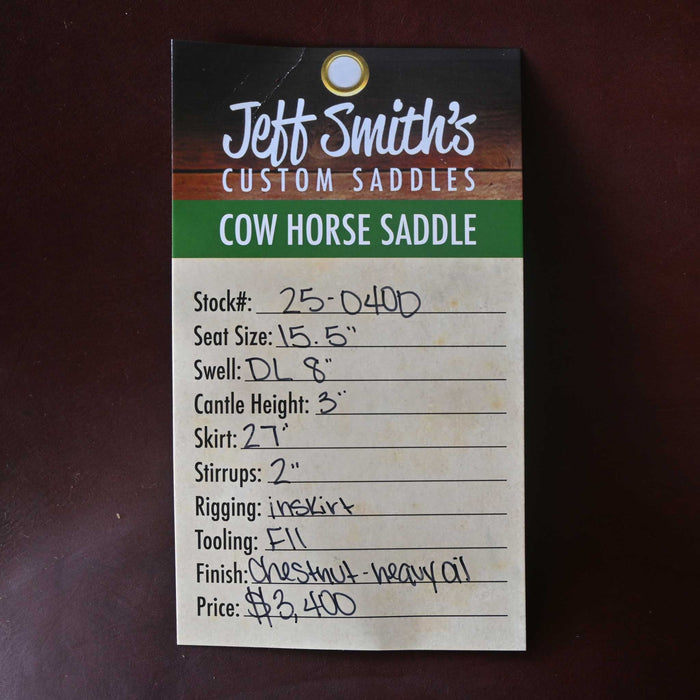 Jeff Smith's
CUSTOM SADDLES
COW HORSE SADDLE
Stock#: 25-0400
Seat Size: 15.5"
Swell: DL 8"
Cantle Height: 3"
Skirt: 27"
Stirrups: 2"
Rigging: inskirt
Tooling: F11
Finish: Chestnut-heavy oil
Price: $3,400